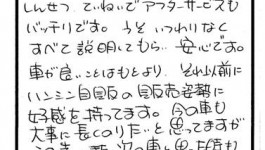 しんせつ、ていねいでアフターサービスも
バッチリです。うそいつわりなく
すべて説明してもらい安心です。
車が良いことはもとより、それ以前に
ハンミン自販の販売姿勢に
好感を持ってます。今の車も
大事に長くのりたいと思ってますが